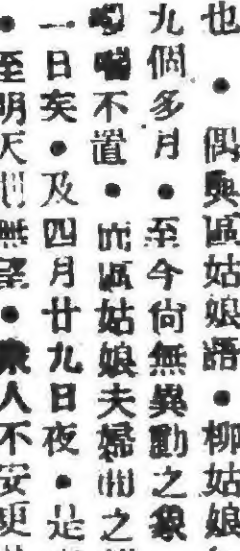 也●偶與區姑娘語●柳姑娘
九個多月●至今尙無異動之象
嘖嘖不置●而區姑娘夫婦聞之
一日矣●及四月廿九日夜●是
●至明天則無望●衆人不安更